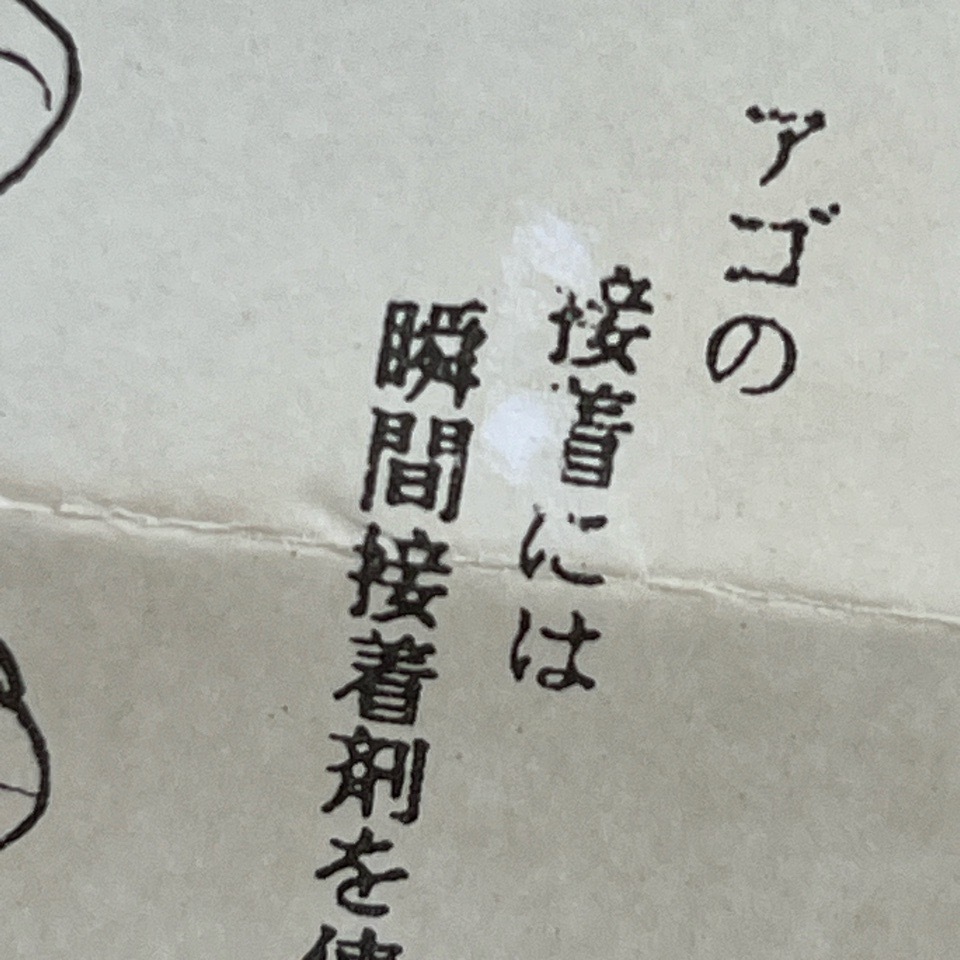 アゴの
接着には
瞬間接着剤を使